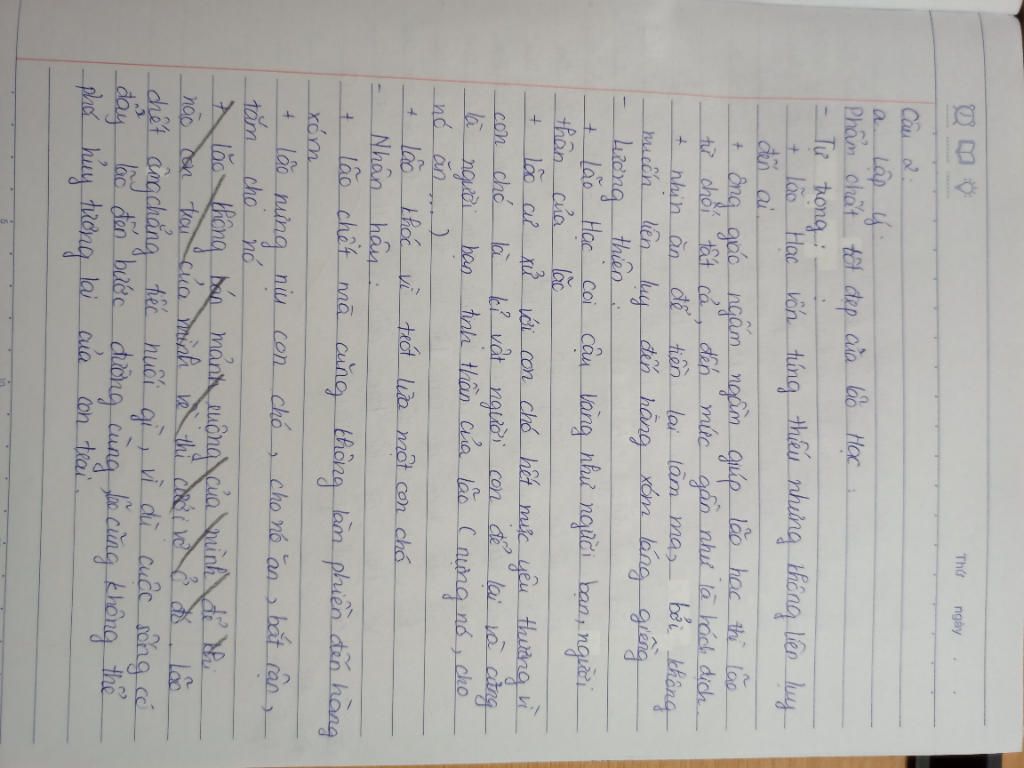 Thứ ngày
Câu 2.
a. Lập ý.
Phẩm chất tốt đẹp của lão Hạc:
- Tự trọng:
+ Lão Hạc vốn túng thiếu nhưng không liên luỵ
đến ai.
+ ông giáo ngấm ngầm giúp lão hạc thì lão
từ chối tất cả, đến mức gần như là hách dịch.
+ nhịn ăn để tiền lại làm ma, bởi không
muốn liên luỵ đến hàng xóm láng giềng
- Lương thiện:
+ Lão Hạc coi cậu Vàng như người bạn, người
thân của lão
+ lão cư xử với con chó hết mực yêu thương vì
con chó là kỉ vật người con để lại và cũng
là người bạn tri thân của lão (nựng nó, cho
nó ăn...)
+ Lão khóc vì trót lừa một con chó
- Nhân hậu:
+ Lão chết mà cũng không làm phiền đến hàng
xóm
+ Lão nựng nịu con chó, cho nó ăn, bắt rận,
tắm cho nó
+ lão không bán mảnh ruộng của mình để khi
nào con trai của mình về thì cưới vợ ở đó. Lão
chết cũng chẳng tiếc nuối gì, vì dù cuộc sống có
đẩy lão đến bước đường cùng, lão cũng không thể
phá hủy tương lai của con trai.